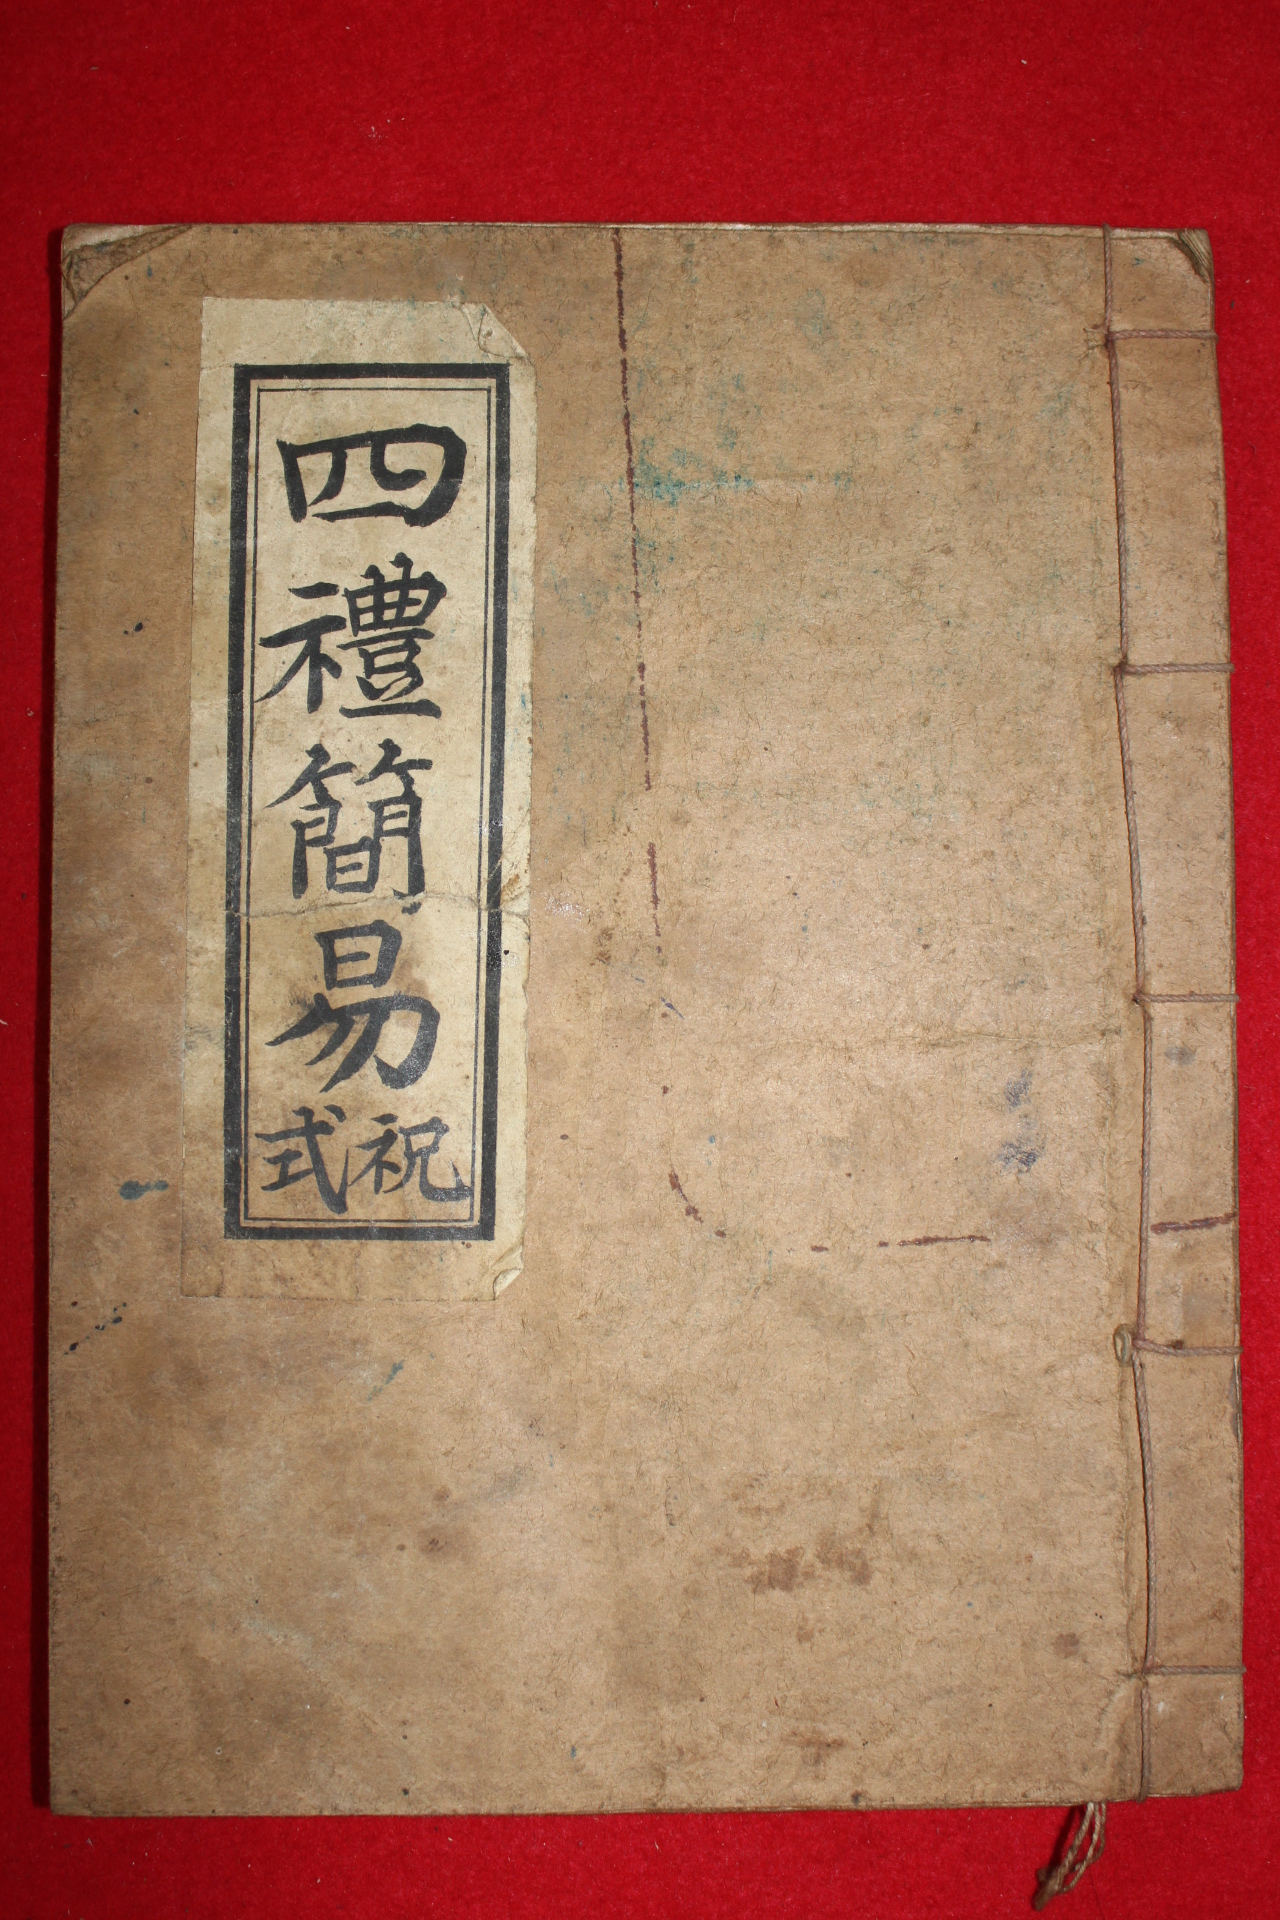 四禮簡易
祝式